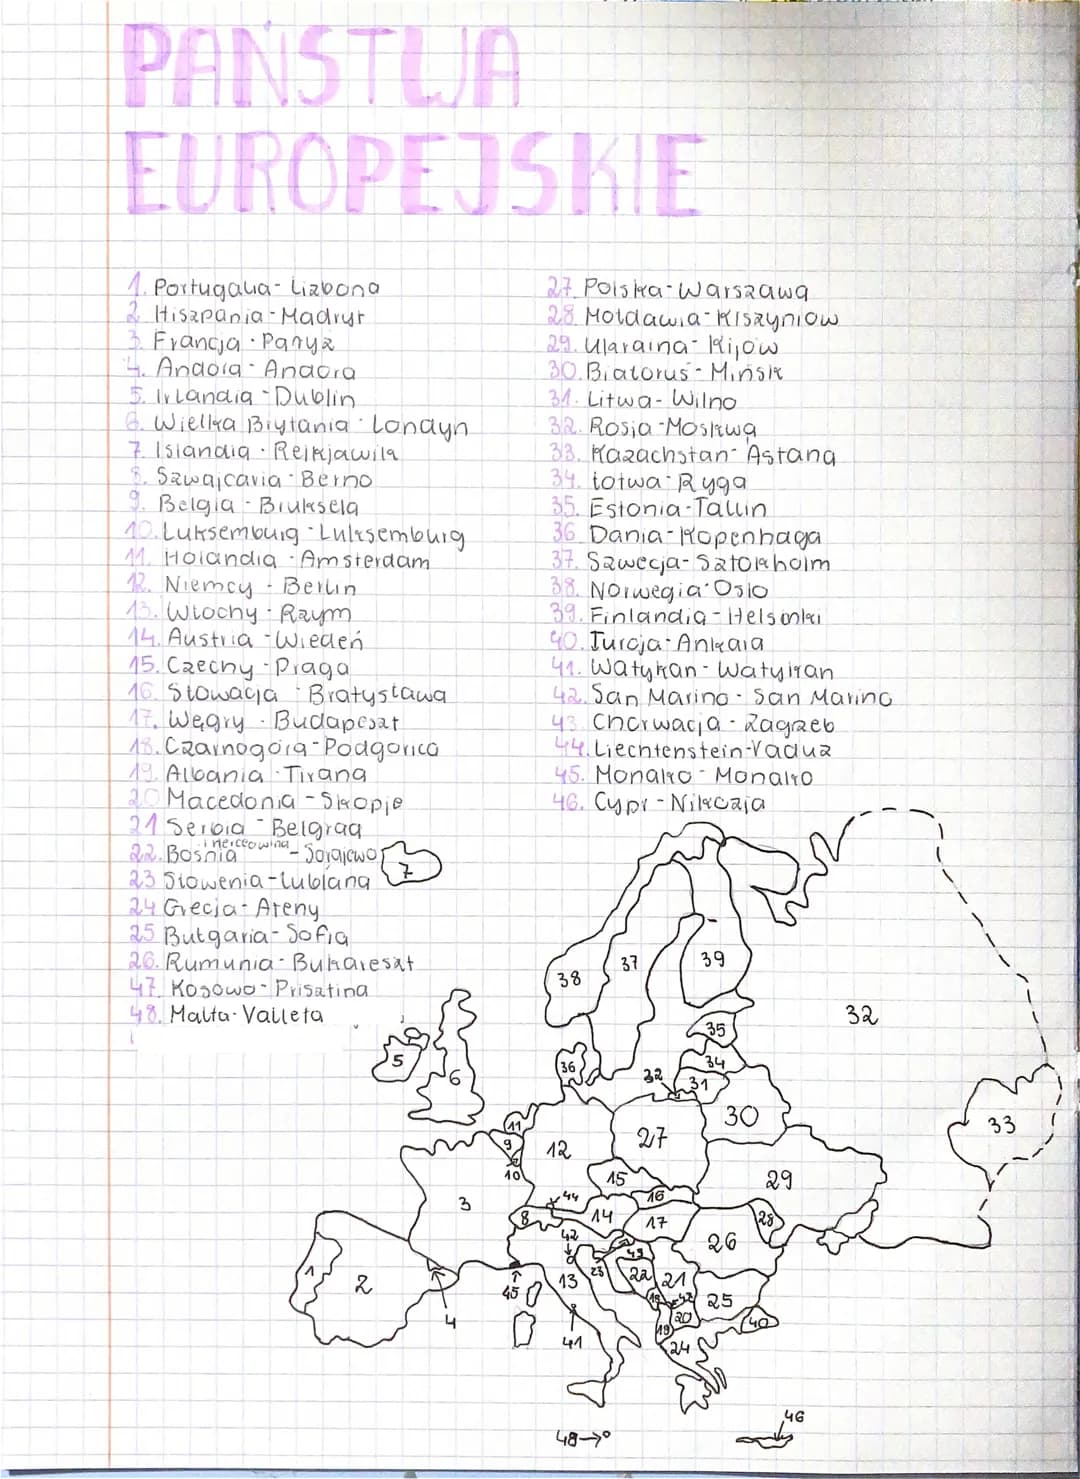 PAŃSTWA
EUROPEJSKIE
1. Portugalia - Lizbona
2. Hiszpania - Madryt
3. Francja - Paryż
4. Andora - Andora
5. Irlandia - Dublin
6. Wielka Brytania - Londyn
7. Islandia - Reikjawik
8. Szwajcaria - Berno
9. Belgia - Bruksela
10. Luksemburg - Luksemburg
11. Holandia - Amsterdam
12. Niemcy - Berlin
13. Włochy - Rzym
14. Austria - Wiedeń
15. Czechy - Praga
16. Słowacja - Bratysława
17. Węgry - Budapeszt
18. Czarnogóra - Podgorica
19. Albania - Tirana
20 Macedonia - Skopje
21 Serbia - Belgrad
22. Bośnia i Hercegowina - Sarajewo
23 Słowenia - Lublana
24 Grecja - Ateny
25 Bułgaria - Sofia
26. Rumunia - Bukareszt
47. Kosowo - Prisztina
48. Malta - Valleta
27. Polska - Warszawa
28. Mołdawia - Kiszyniów
29. Ukraina - Kijów
30. Białoruś - Mińsk
31. Litwa - Wilno
32. Rosja - Moskwa
33. Kazachstan - Astana
34. Łotwa - Ryga
35. Estonia - Tallin
36 Dania - Kopenhaga
37. Szwecja - Sztokholm
38. Norwegia - Oslo
39. Finlandia - Helsinki
40. Turcja - Ankara
41. Watykan - Watykan
42. San Marino - San Marino
43. Chorwacja - Zagrzeb
44. Liechtenstein - Vaduz
45. Monako - Monako
46. Cypr - Nikozja
7
39
37
38
32
35
5
36
34
32
31
6
33
30
11
27
9
12
10
15
29
44
16
3
14
28
8
17
42
26
43
1
2
13
23
22
21
45
18
47
25
4
20
40
41
19
24
46
48